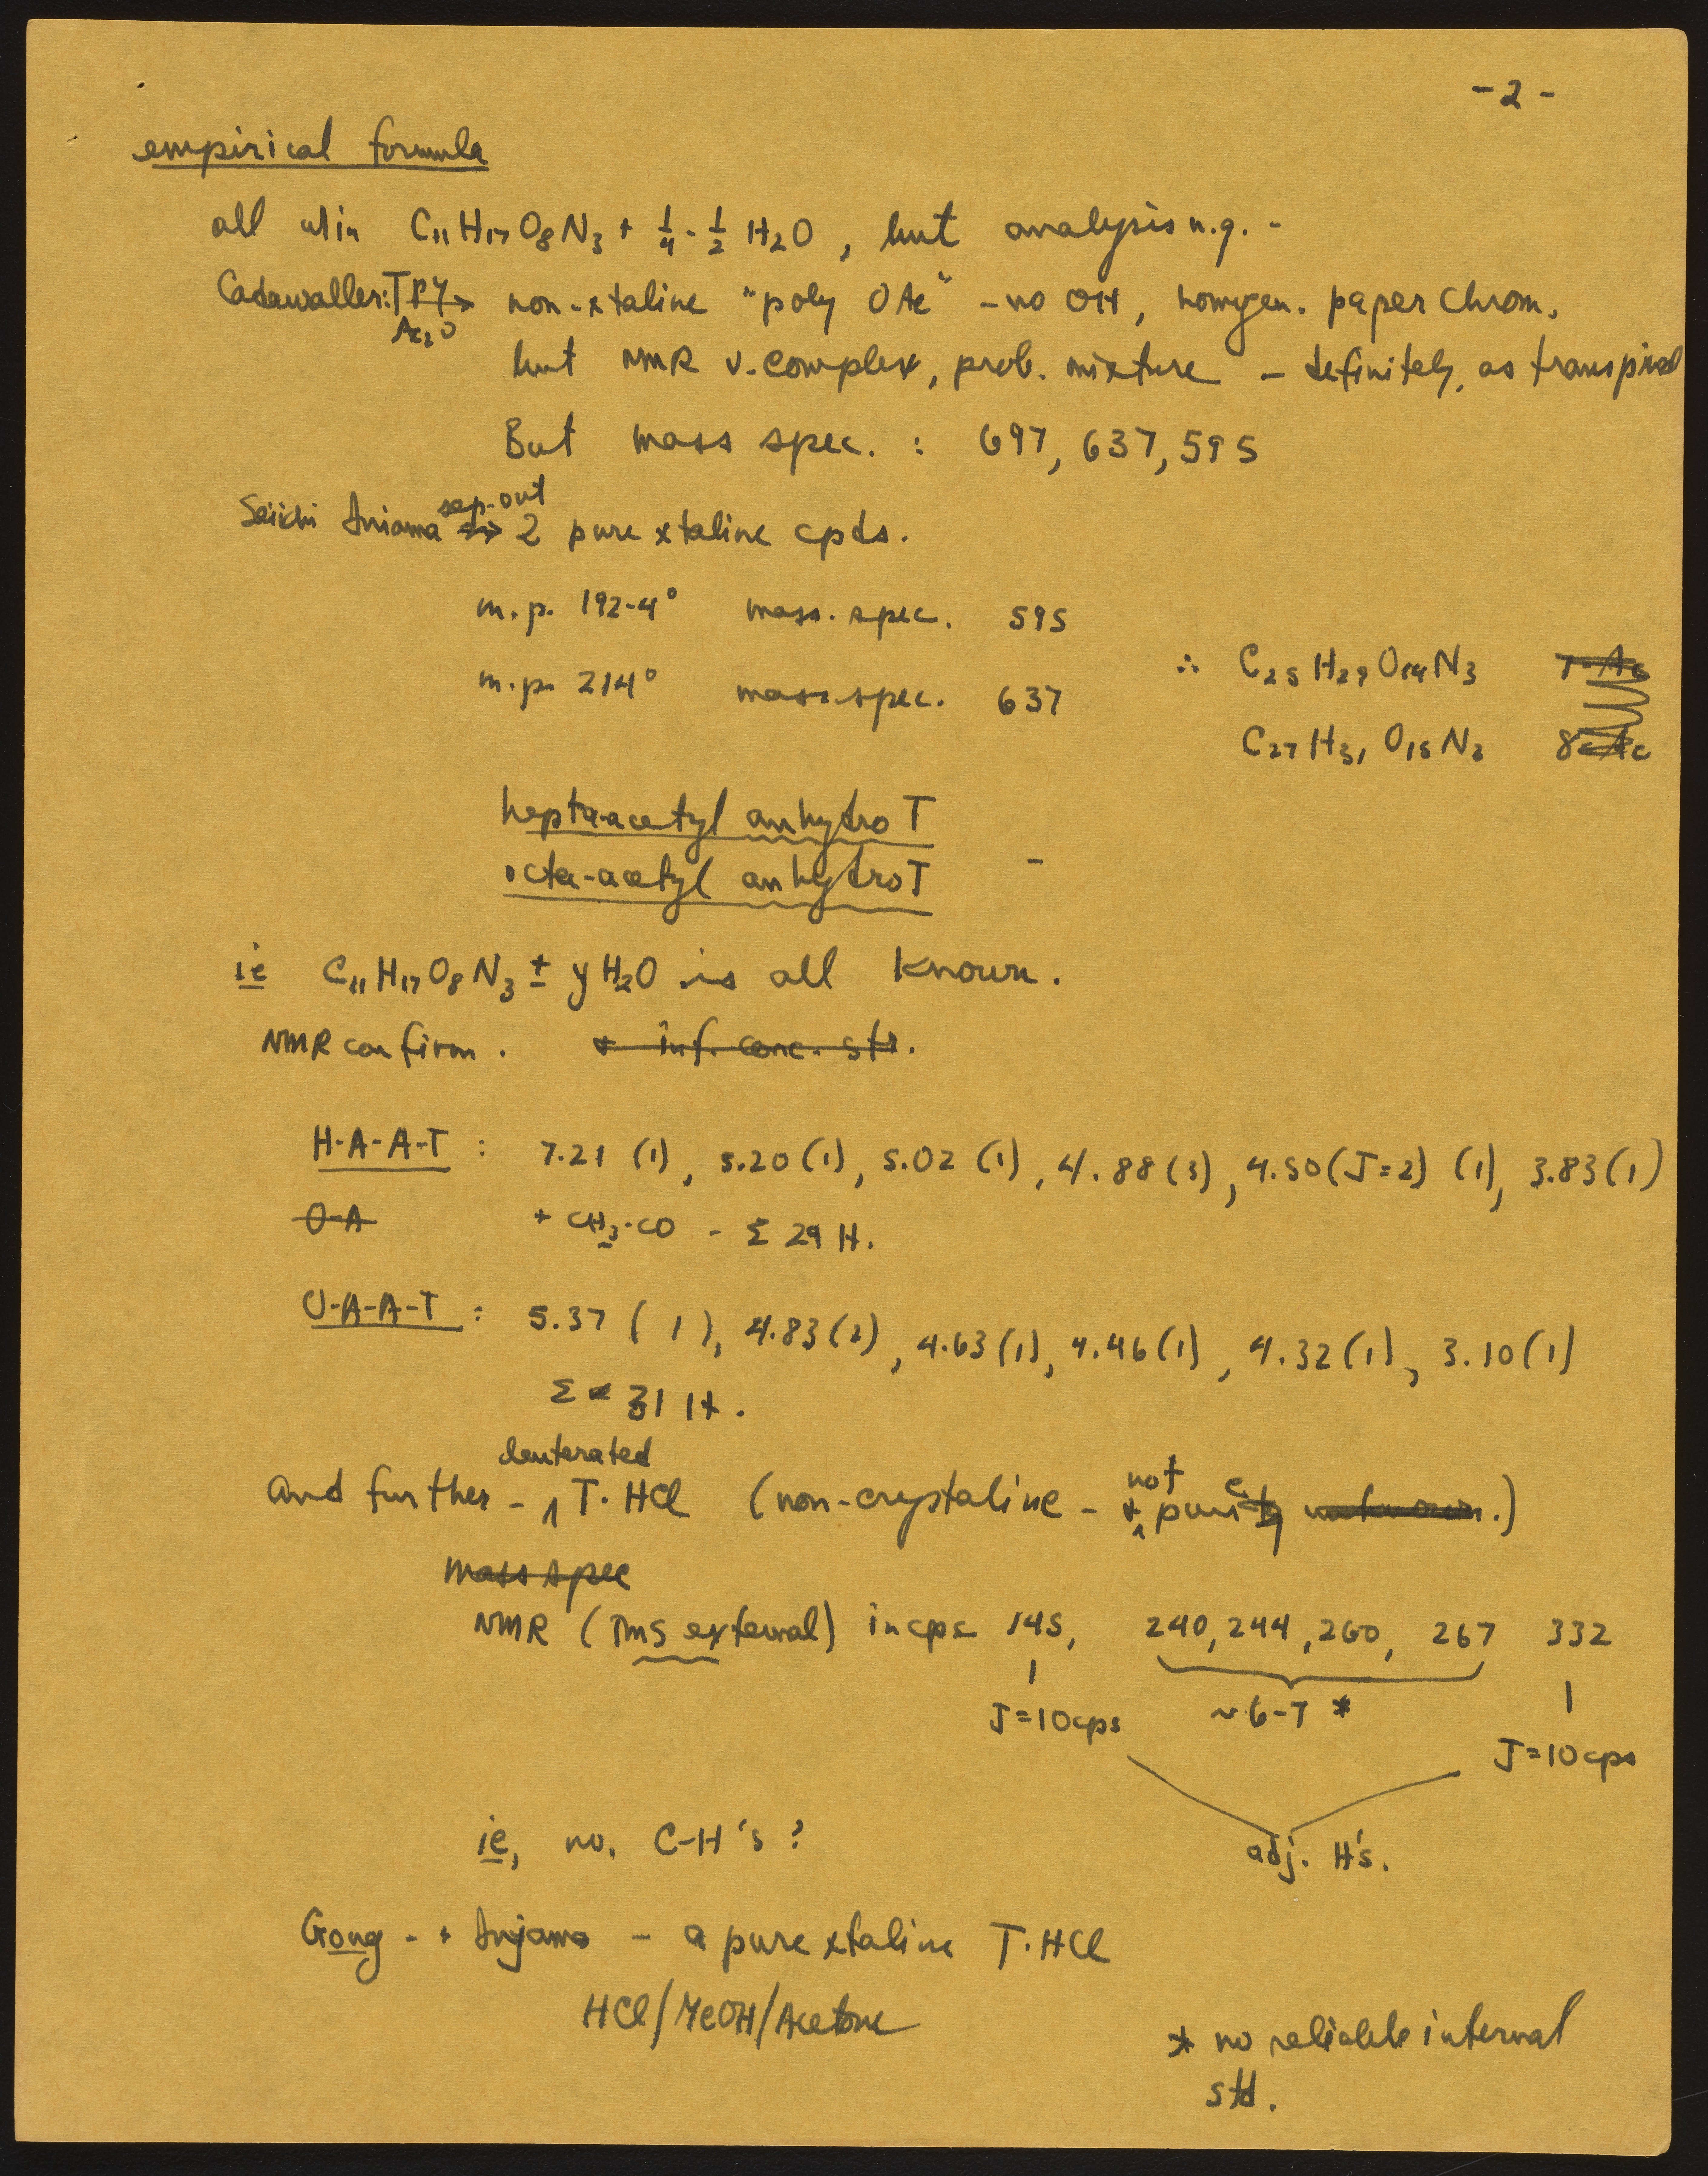 -2-
empirical formula
all w/in C11H17O8N3 + 1/4 - 1/2 H2O, but analysis n.g. -
Cadawaller: T Py → Ac2O non-xtaline "poly OAc" - no OH, homogen. paper chrom.
but NMR v. complex, prob. mixture - definitely, as transpired
But mass spec. : 697, 637, 595
Seiichi sep. out → 2 pure xtaline cpds.
m.p. 192-4° mass. spec. 595
m.p. 214° mass spec. 637
∴ C25H29O14N3 7-Ac
C27H31O15N3 8-Ac
hepta-acetyl anhydro T
octa-acetyl anhydro T -
ie C11H17O8N3 ± y H2O is all known.
NMR confirm. + inf. conc. str.
H-A-A-T : 7.21 (1), 5.20 (1), 5.02 (1), 4.88 (3), 4.50 (J=2) (1), 3.83 (1)
O-A + CH3·CO - Σ 29 H.
O-A-A-T : 5.37 (1), 4.83 (2), 4.63 (1), 4.46 (1), 4.32 (1), 3.10 (1)
Σ 31 H.
and further - deuterated T·HCl (non-crystaline - + not pure unknown.)
mass spec
NMR (TMS external) in cps 145, 240, 244, 260, 267 332
J=10cps ~6-7 * J=10cps
adj. H's.
ie, no. C-H's?
Gong - + - a pure xtaline T·HCl
HCl/MeOH/Acetone
* no reliable internal
std.